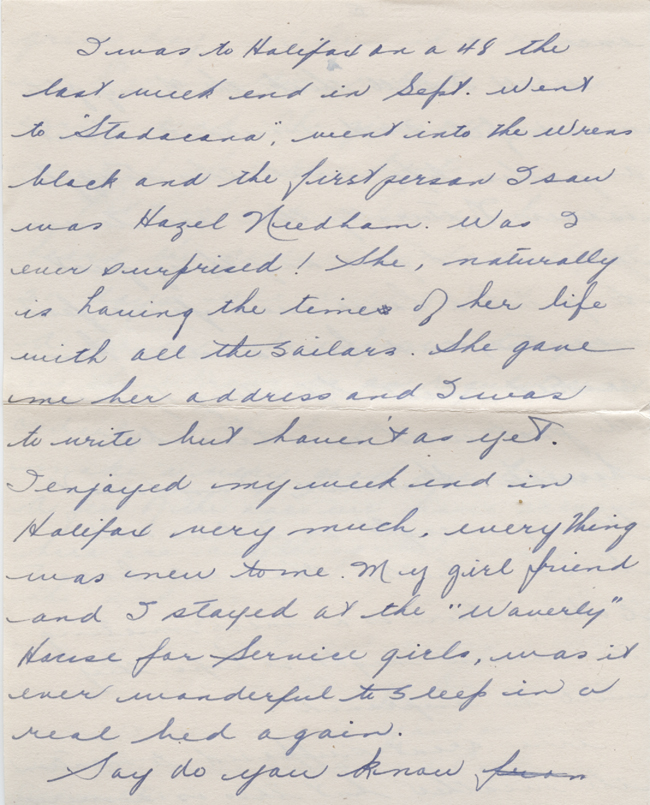 I was to Halifax on a 48 the
last week end in Sept. Went
to "Stadacona", went into the Wrens
block and the first person I saw
was Hazel Needham. Was I
ever surprised! She, naturally
is having the times of her life
with all the sailors. She gave
me her address and I was
to write but haven't as yet.
I enjoyed my week end in
Halifax very much, everything
was new to me. My girl friend
and I stayed at the "Waverly"
House for Service girls, was it
ever wonderful to sleep in a
real bed again.
Say do you know from